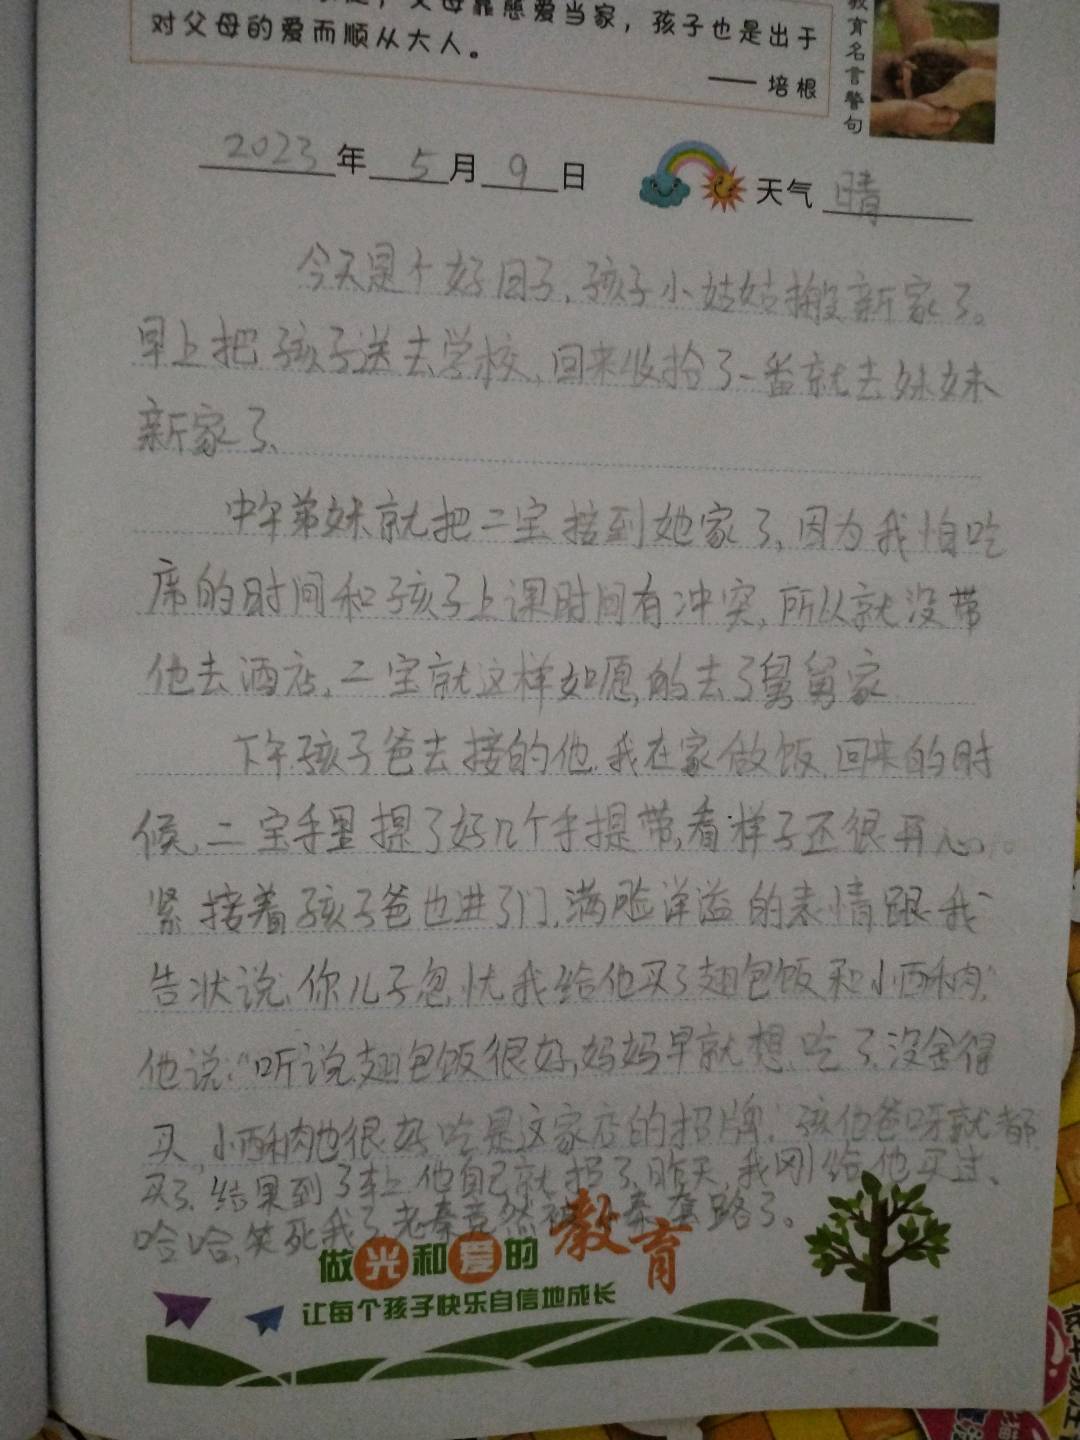 父母靠慈爱当家，孩子也是出于
对父母的爱而顺从大人。
—— 培根
教育名言警句
2023年 5月 9日 天气 晴
今天是个好日子，孩子小姑姑搬新家了。
早上把孩子送去学校，回来收拾了一番就去妹妹
新家了、
中午弟妹就把二宝接到她家了，因为我怕吃
席的时间和孩子上课时间有冲突，所以就没带
他去酒店，二宝就这样如愿的去了舅舅家
下午孩子爸去接的他，我在家做饭，回来的时
候，二宝手里提了好几个手提带，看样子还很开心。
紧接着孩子爸也进了门，满脸洋溢的表情跟我
告状说、你儿子忽忧我给他买了翅包饭和小酥肉，
他说：“听说翅包饭很好，妈妈早就想吃了，没舍得
买，小酥肉也很好吃是这家店的招牌，孩他爸呀就都
买了，结果到了车上他自己就招了，昨天，我刚给他买过、
哈哈，笑死我了，老秦竟然被小秦套路了。
做光和爱的教育
让每个孩子快乐自信地成长